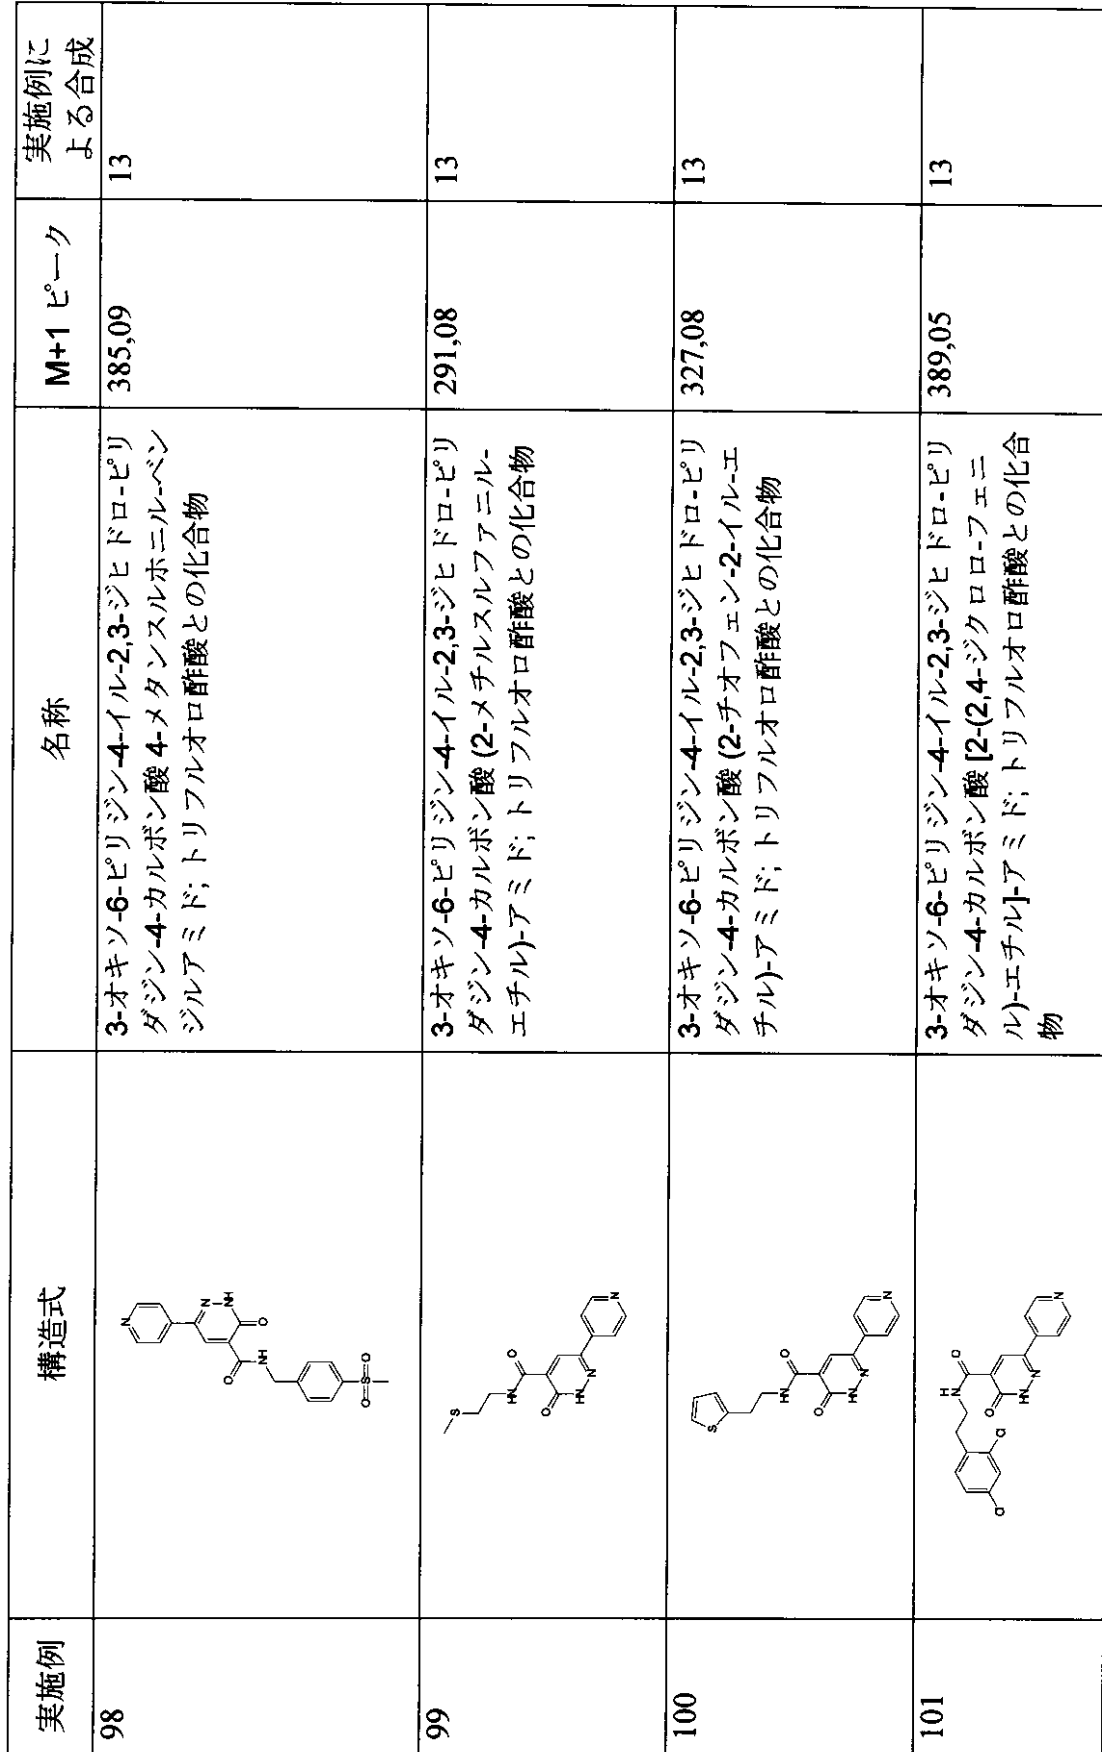 実施例
構造式
名称
M+1 ピーク
実施例に
よる合成
98
3-オキソ-6-ピリジン-4-イル-2,3-ジヒドロ-ピリ
ダジン-4-カルボン酸 4-メタンスルホニル-ベン
ジルアミド; トリフルオロ酢酸との化合物
385,09
13
99
3-オキソ-6-ピリジン-4-イル-2,3-ジヒドロ-ピリ
ダジン-4-カルボン酸 (2-メチルスルファニル-
エチル)-アミド; トリフルオロ酢酸との化合物
291,08
13
100
3-オキソ-6-ピリジン-4-イル-2,3-ジヒドロ-ピリ
ダジン-4-カルボン酸 (2-チオフェン-2-イル-エ
チル)-アミド; トリフルオロ酢酸との化合物
327,08
13
101
3-オキソ-6-ピリジン-4-イル-2,3-ジヒドロ-ピリ
ダジン-4-カルボン酸 [2-(2,4-ジクロロ-フェニ
ル)-エチル]-アミド; トリフルオロ酢酸との化合
物
389,05
13